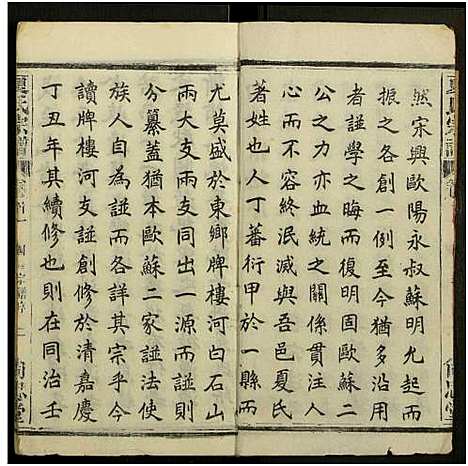 然宋興歐陽永叔蘇明允起而
振之各創一例至今攷
者譜學之晦而復明固歐蘇二
公之力亦血統之關係貫注人
心而不容終泯滅與吾邑夏氏
著姓也人丁蕃衍甲於一縣而
尤莫盛於東鄉牌樓河白石山
兩大支兩支同出一源而譜
分纂蓋猶本歐蘇二家譜法使
族人自為譜而各詳其宗乎今
讀牌樓河支譜創修於清嘉慶
丁丑年其續修也則在同治壬
夏氏宗譜